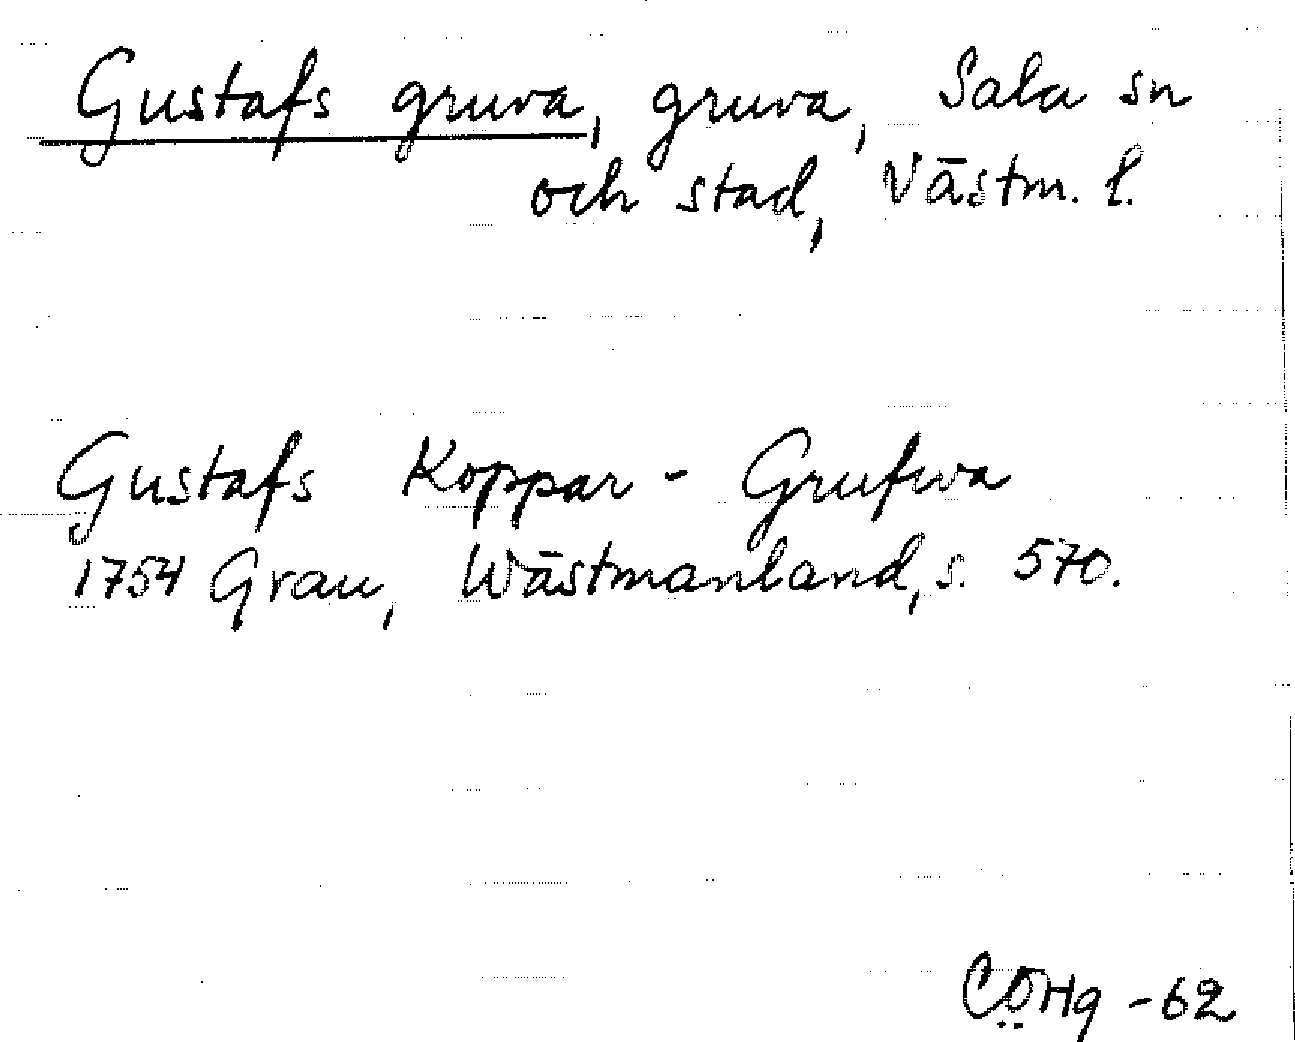 Gustafs gruva, gruva, Sala sn
och stad, Västm. l.
Gustafs Koppar-Grufwa
1754 Grau, Wästmanland, s. 570.
CÖHg -62